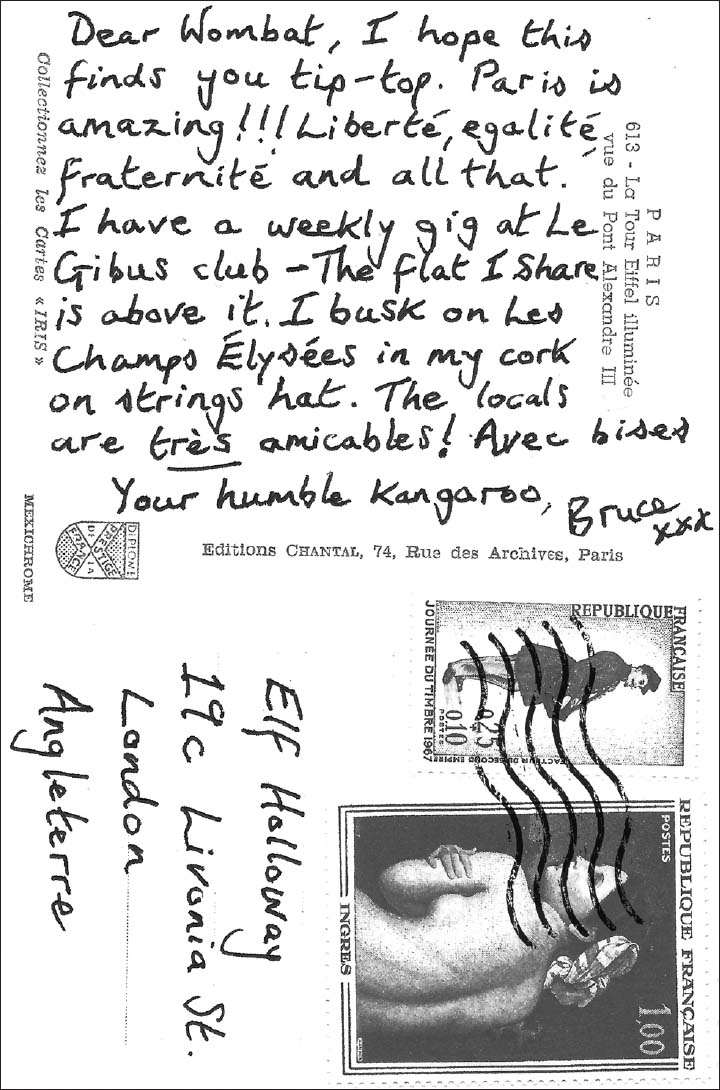 Dear Wombat, I hope this
finds you tip-top. Paris is
amazing!!! Liberté, egalité,
fraternité and all that.
I have a weekly gig at Le
Gibus club – The flat I share
is above it. I busk on Les
Champs Élysées in my cork
on strings hat. The locals
are très amicables! Avec bises
Your humble Kangaroo, Bruce
xxx
PARIS
613 - La Tour Eiffel illuminée
vue du Pont Alexandre III
Collectionnez les Cartes « IRIS »
Editions CHANTAL, 74, Rue des Archives, Paris
MEXICHROME
DIPLOME
PRESTIGE
DE LA
FRANCE
Elf Holloway
19c Livonia St.
London
Angleterre
REPUBLIQUE FRANÇAISE
JOURNÉE DU TIMBRE 1967
0,25
0,10
POSTES
FACTEUR DU SECOND EMPIRE
REPUBLIQUE FRANÇAISE
POSTES
1,00
INGRES